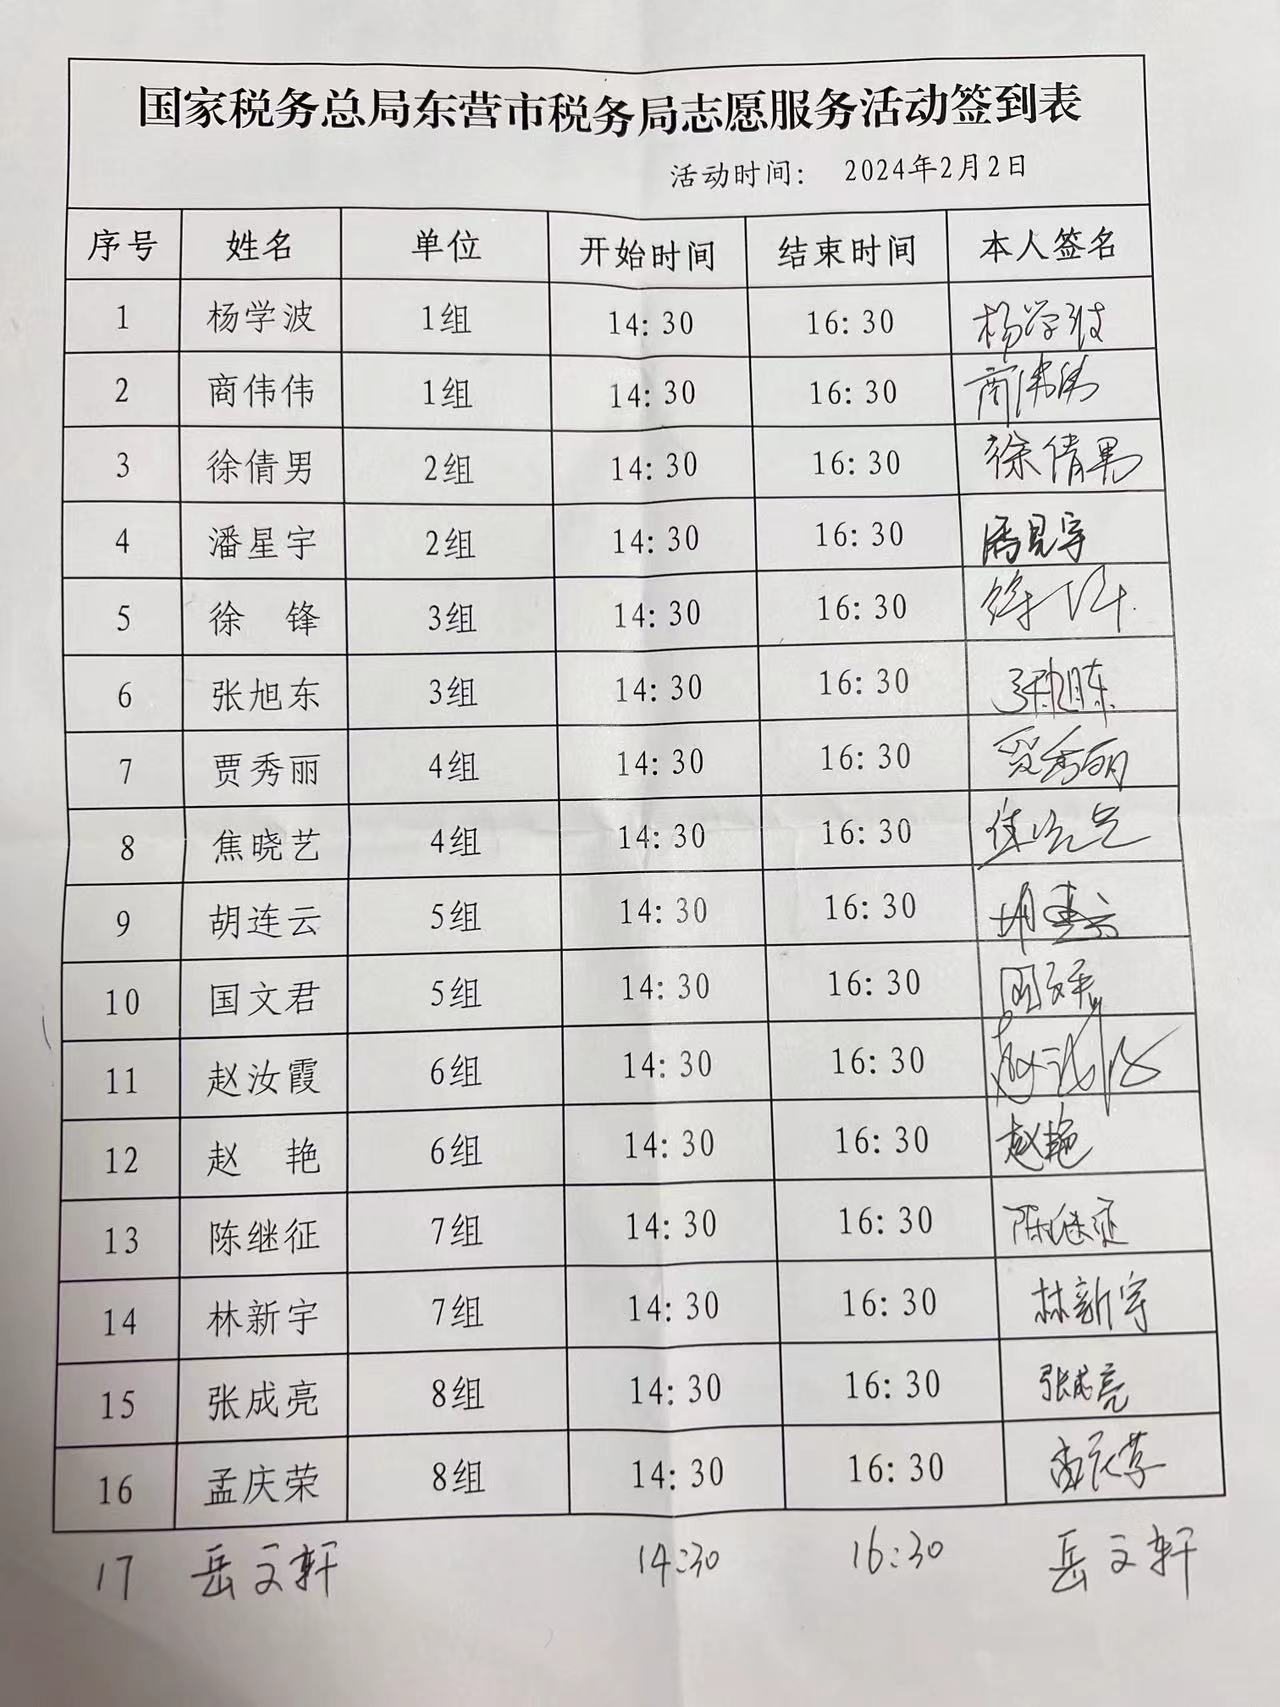 国家税务总局东营市税务局志愿服务活动签到表
活动时间： 2024年2月2日
序号 姓名 单位 开始时间 结束时间 本人签名
1 杨学波 1组 14:30 16:30 杨学波
2 商伟伟 1组 14:30 16:30 商伟伟
3 徐倩男 2组 14:30 16:30 徐倩男
4 潘星宇 2组 14:30 16:30 潘星宇
5 徐 锋 3组 14:30 16:30 徐锋
6 张旭东 3组 14:30 16:30 张旭东
7 贾秀丽 4组 14:30 16:30 贾秀丽
8 焦晓艺 4组 14:30 16:30 焦晓艺
9 胡连云 5组 14:30 16:30 胡连云
10 国文君 5组 14:30 16:30 国文君
11 赵汝霞 6组 14:30 16:30 赵汝霞
12 赵 艳 6组 14:30 16:30 赵艳
13 陈继征 7组 14:30 16:30 陈继征
14 林新宇 7组 14:30 16:30 林新宇
15 张成亮 8组 14:30 16:30 张成亮
16 孟庆荣 8组 14:30 16:30 孟庆荣
17 岳文轩 14:30 16:30 岳文轩